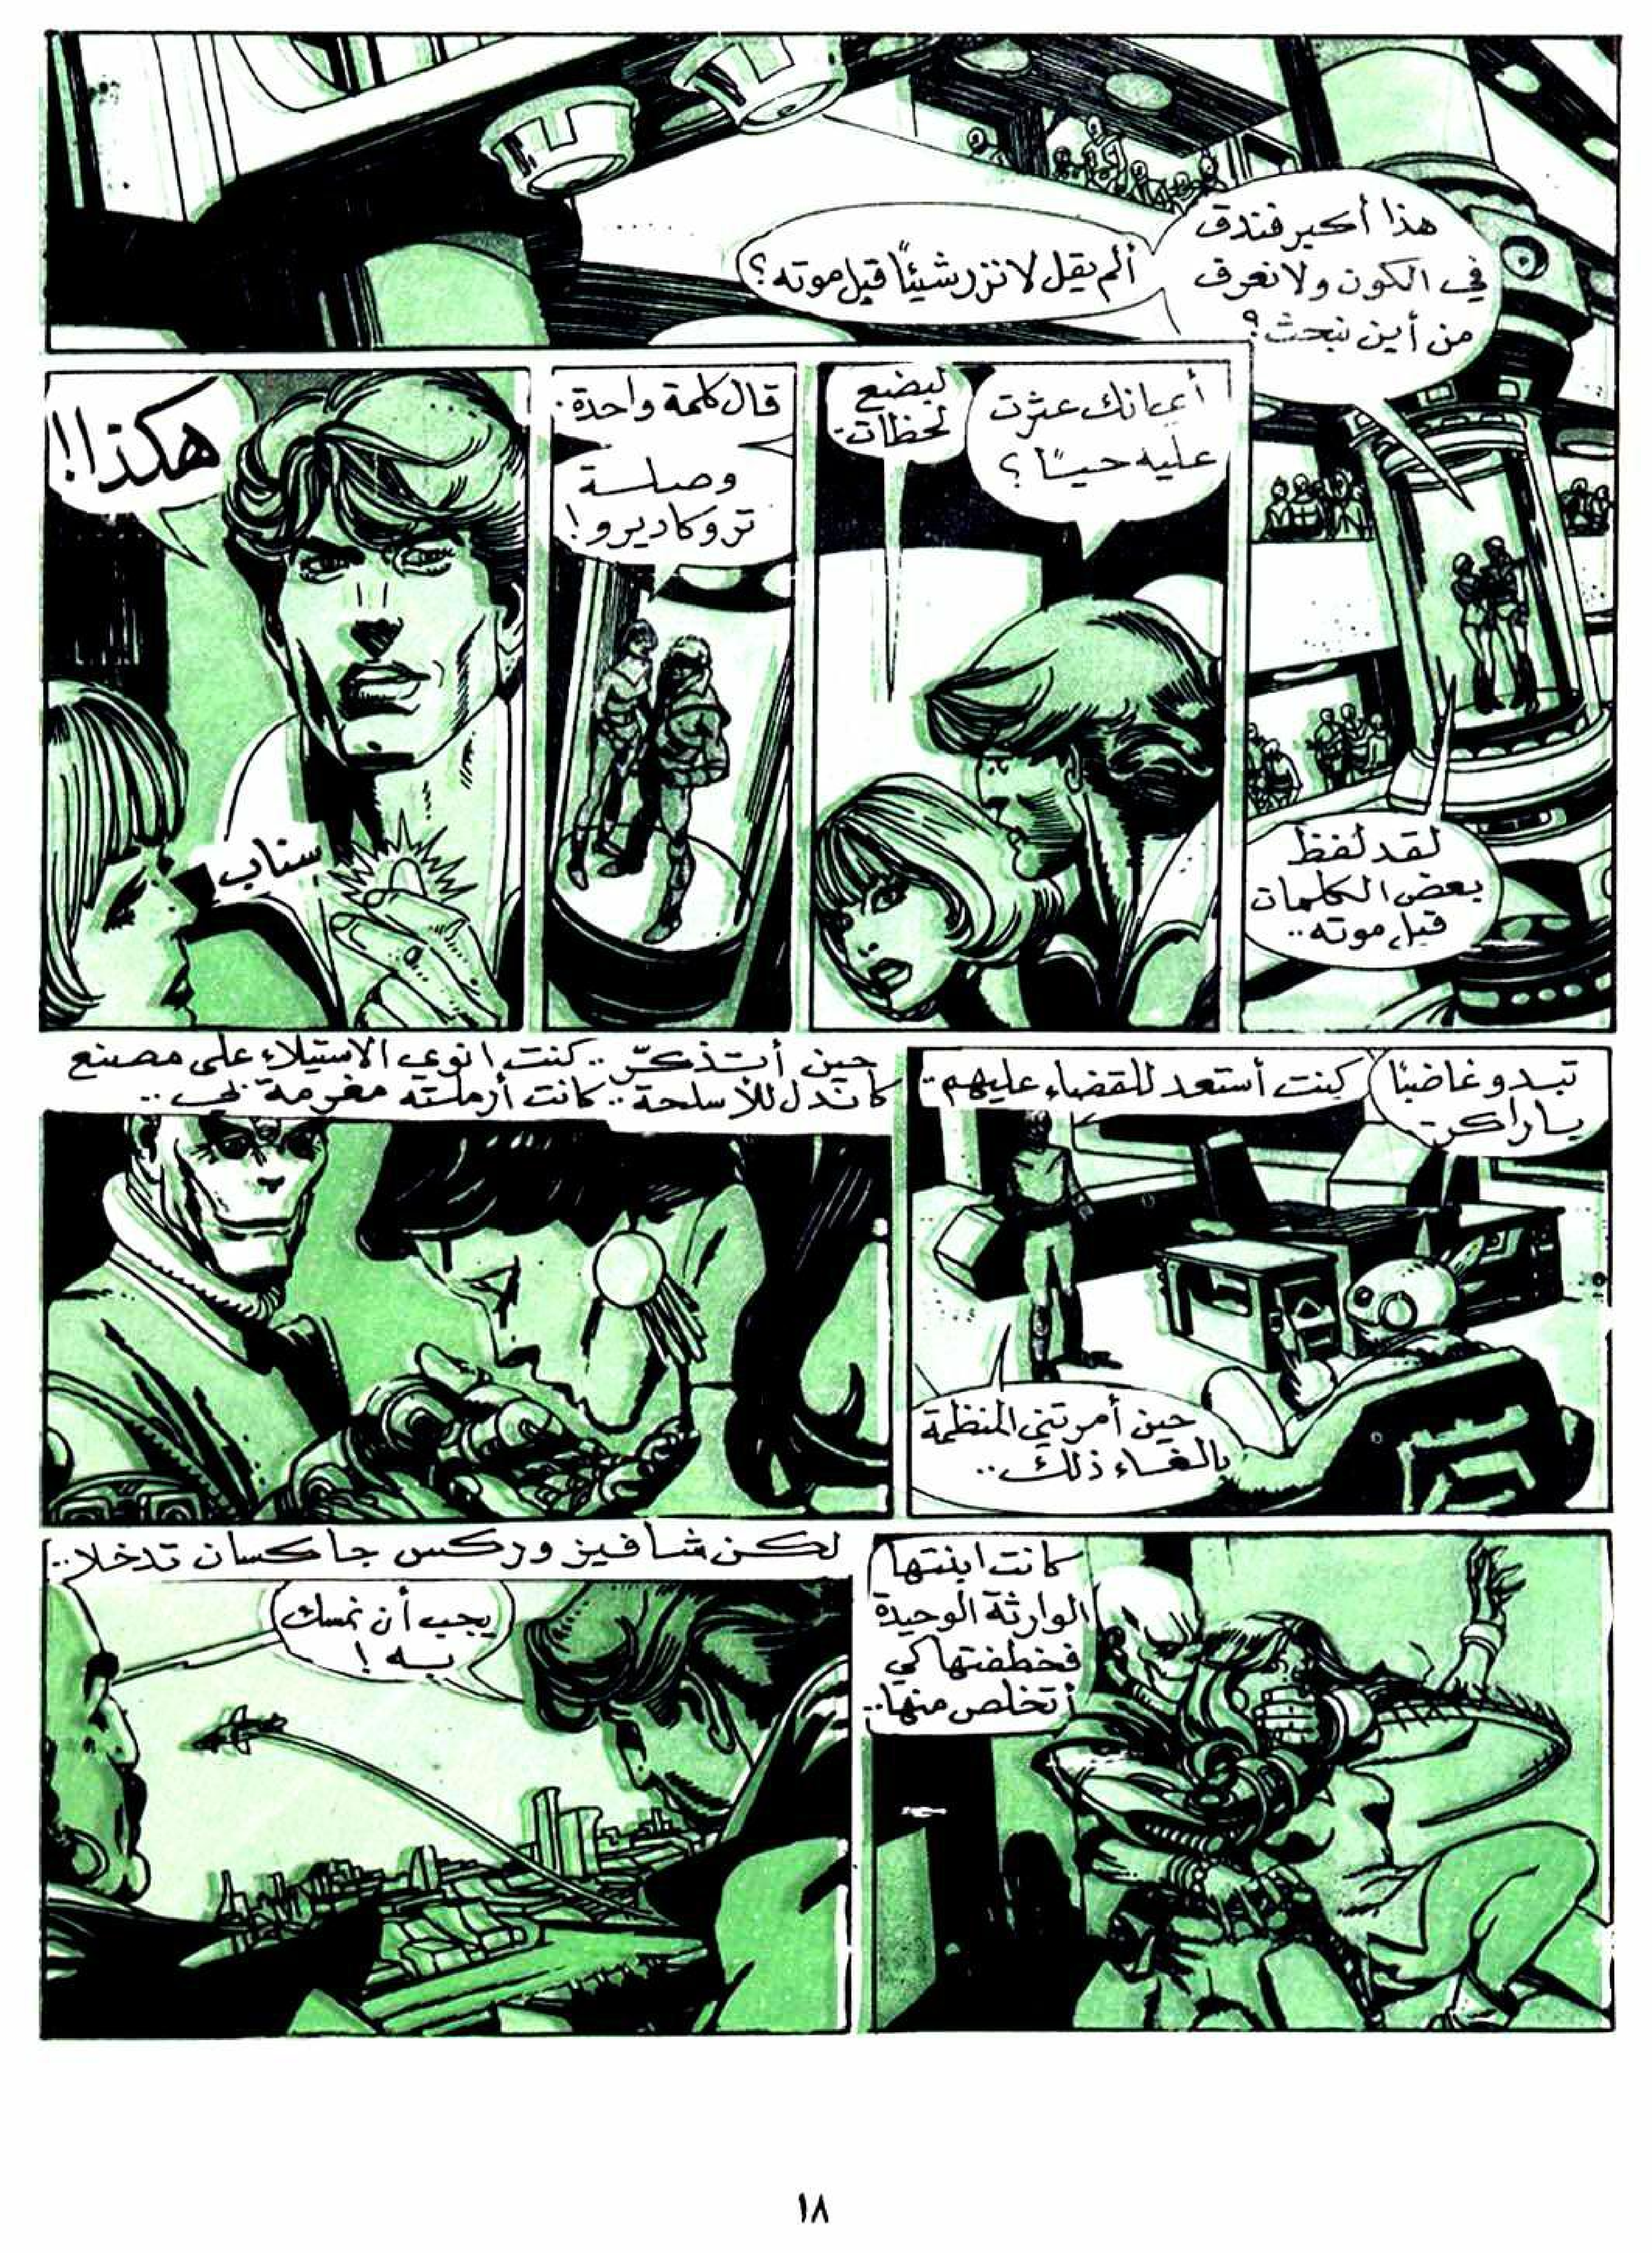 هذا أكبر فندق
في الكون ولا نعرف
من أين نبحث؟
ألم يقل لانزر شيئًا قبل موته؟
لقد لفظ
بعض الكلمات
قبل موته..
أي انك عثرت
عليه حيًا؟
لبضع
لحظات..
قال كلمة واحدة.
وصلة
تروكاديرو!
هكذا!!
سناب
تبدو غاضبًا
يا راكر
كنت أستعد للقضاء عليهم..
حين أمرتني المنظمة
بالغاء ذلك..
حين أتذكّر.. كنت انوي الاستيلاء على مصنع
كاندل للأسلحة.. كانت أرملته مغرمة بي..
كانت ابنتها
الوارثة الوحيدة
فخطفتها كي
أتخلص منها..
لكن شافيز وركس جاكسان تدخلا..
يجب أن نمسك
به!
١٨